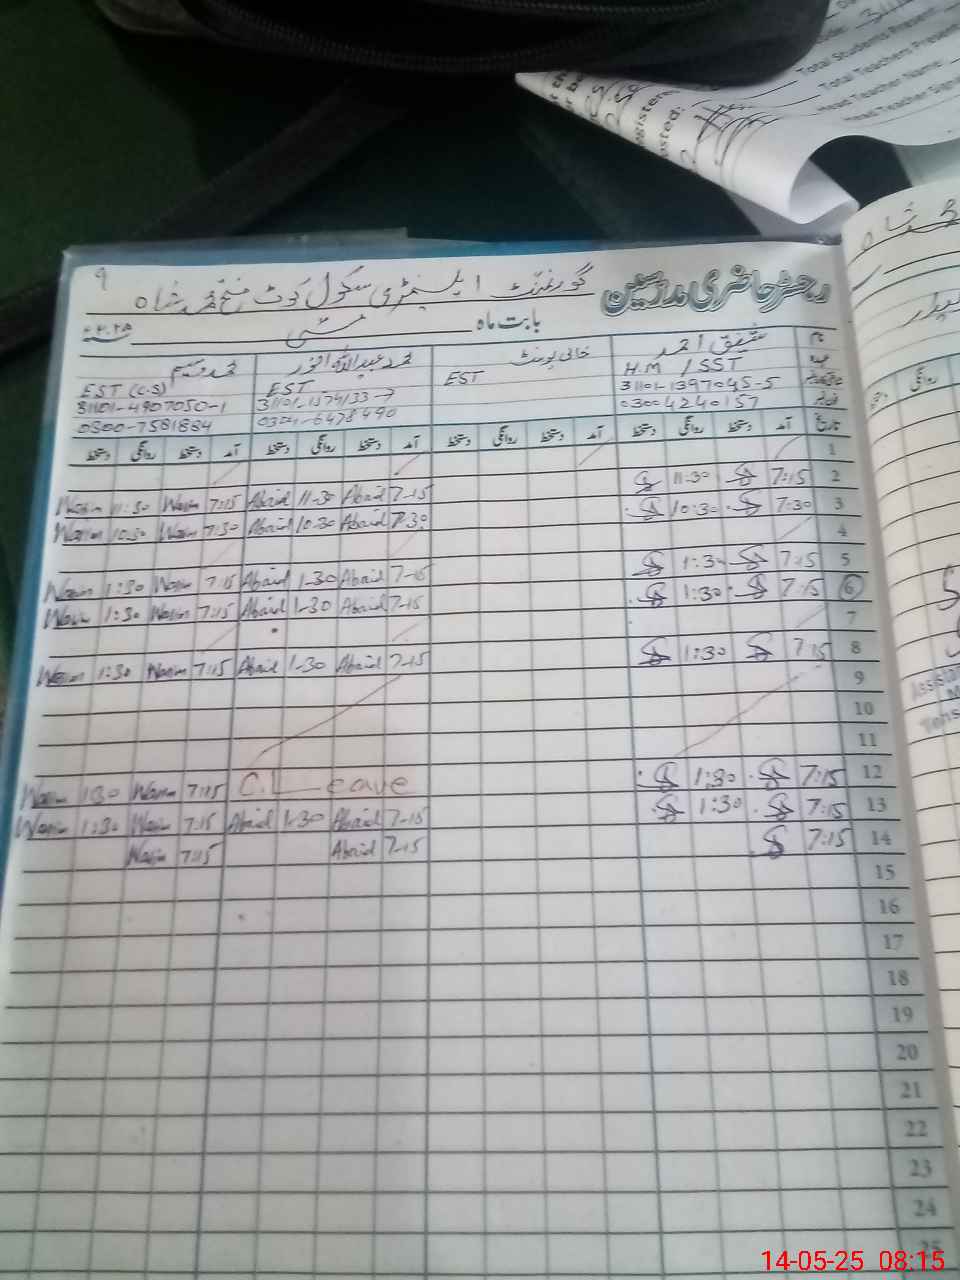 Total Students Present
Total Teachers Present
Head Teacher Name:
Head Teacher Sign
۹
رجسٹر حاضری مدرسین گورنمنٹ ایلیمنٹری سکول کوٹ فتح محمد شاہ
بابت ماہ مئی ۲۰۲۵ء
نام شفیق احمد خالی پوسٹ محمد عبیداللہ انور محمد وسیم
عہدہ H.M / SST EST EST EST (C.S)
31101-1397045-5 31101-4907050-1
03004240157 0304-6478490 0300-7581884
تاریخ آمد دستخط روانگی دستخط آمد دستخط روانگی دستخط آمد دستخط روانگی دستخط آمد دستخط روانگی دستخط
1
2 7:15 11:30 7-15 Abaid 11-30 Abaid 7:15 Wasim 11:30 Wasim
3 7:30 10:30 7-30 Abaid 10-30 Abaid 7:30 Wasim 10:30 Wasim
4
5 7:15 1:30 7-15 Abaid 1-30 Abaid 7:15 Wasim 1:30 Wasim
6 7:15 1:30 7-15 Abaid 1-30 Abaid 7:15 Wasim 1:30 Wasim
7
8 7:15 1:30 7-15 Abaid 1-30 Abaid 7:15 Wasim 1:30 Wasim
9
10
11
12 7:15 1:30 C.Leave 7:15 Wasim 1:30 Wasim
13 7:15 1:30 7-15 Abaid 1-30 Abaid 7:15 Wasim 1:30 Wasim
14 7:15 7-15 Abaid 7:15 Wasim
15
16
17
18
19
20
21
22
23
24
25
14-05-25 08:15